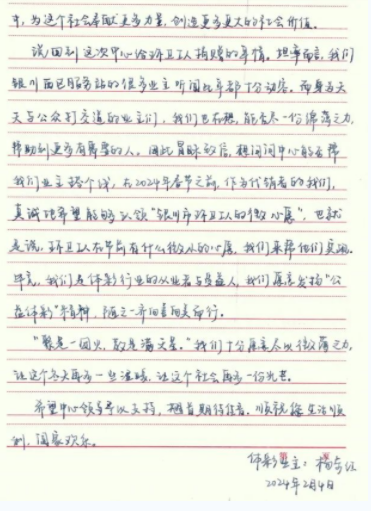 来，为这个社会奉献更多力量，创造更多更大的社会价值。
说回到这次中心给环卫工人捐赠的事情。坦率而言，我们
银川西区服务站的很多业主听闻此事都十分动容。而身为天
天与公众打交道的业主们，我们也在想，能否尽一份绵薄之力，
帮助到更多有需要的人。因此冒昧致信，想询问中心能否帮
我们业主搭个线，在2024年春节之前，作为代销者的我们，
真诚地希望能够认领“银川市环卫工人的微心愿”，也就
是说，环卫工人在节前有什么微小的心愿，我们来帮他们实现。
毕竟，我们是体彩行业的从业者与受益人，我们愿意发扬“公
益体彩”精神，随之一齐向着阳光而行。
“聚是一团火，散是满天星。”我们十分愿意尽以微薄之力，
让这个冬天再多一些温暖，让这个社会再多一份光芒。
希望中心领导予以支持，翘首期待佳音。顺祝您生活顺
利，阖家欢乐。
体彩业主：杨
2024年2月4日